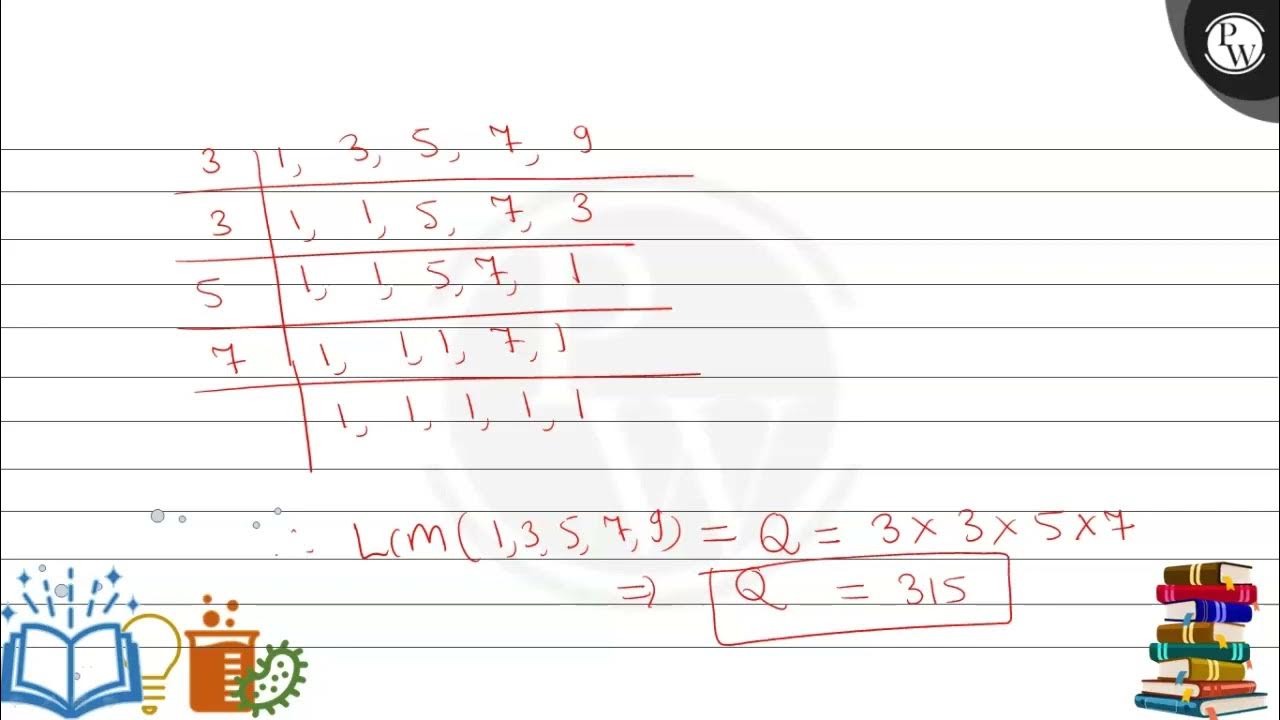 PW
3 | 1, 3, 5, 7, 9
3 | 1, 1, 5, 7, 3
5 | 1, 1, 5, 7, 1
7 | 1, 1, 1, 7, 1
| 1, 1, 1, 1, 1
PW
∴ Lcm(1,3,5,7,9) = Q = 3×3×5×7
⇒ Q = 315